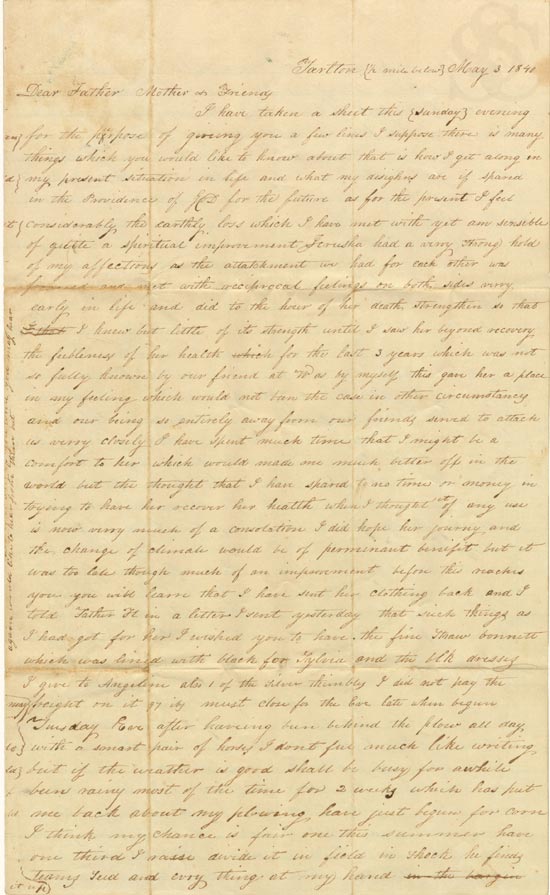 Tarlton {½ mile below} May 3 1840
Dear Father Mother & Friends
I have taken a sheet this {sunday} evening
for the purpose of giveing you a few lines I suppose there is many
things which you would like to know about that is how I get along in
my present situation in life and what my disighns are if spared
in the Providence of GOD for the future as for the present I feel
considerably the earthly loss which I have met with yet am sensible
of quite a spiritual improvement Jerusha had a verry strong hold
of my affections as the attatchment we had for each other was
formed and met with reciprocal feelings on both sides verry
early in life and did to the hour of her death strengthen so that
I knew but little of it strength until I saw her beyond recovery
the feebleness of her health which for the last 3 years which was not
so fully known by our friend at as by myself this gave her a place
in my feeling which would not ben the case in other circumstances
and our being so entirely away from our friends served to attach
us verry closely I have spent much time that I might be a
comfort to her which would made me much better off in the
world but the thought that I have spared no time or money in
trying to have her recover her health when I thought it of any use
is now verry much of a consolation I did hope her journey and
the change of climate would be of permanent benifit but it
was too late though much of an improvement before this reaches
you you will learn that I have sent her clothing back and I
told Father in a letter I sent yesterday that such things as
I had got for her I wished you to have the fine straw bonnett
which was lined with black for Sylvia and the blk dresses
I give to Angeline also 1 of the silver thimbles I did not pay the
freight on it must close for the Eve late when begun
Tuesday Eve after haveing ben behind the plow all day
with a smart pair of horses I dont feel much like writing
but if the weather is good shall be busy for awhile
ben rainy most of the time for 2 weeks which has put
me back about my plowing, have just begun for corn
I think my chance is fair one this summer have
one third I raise divide it in field in shock he finds
teams feed and evry thing at my hand in the bargin